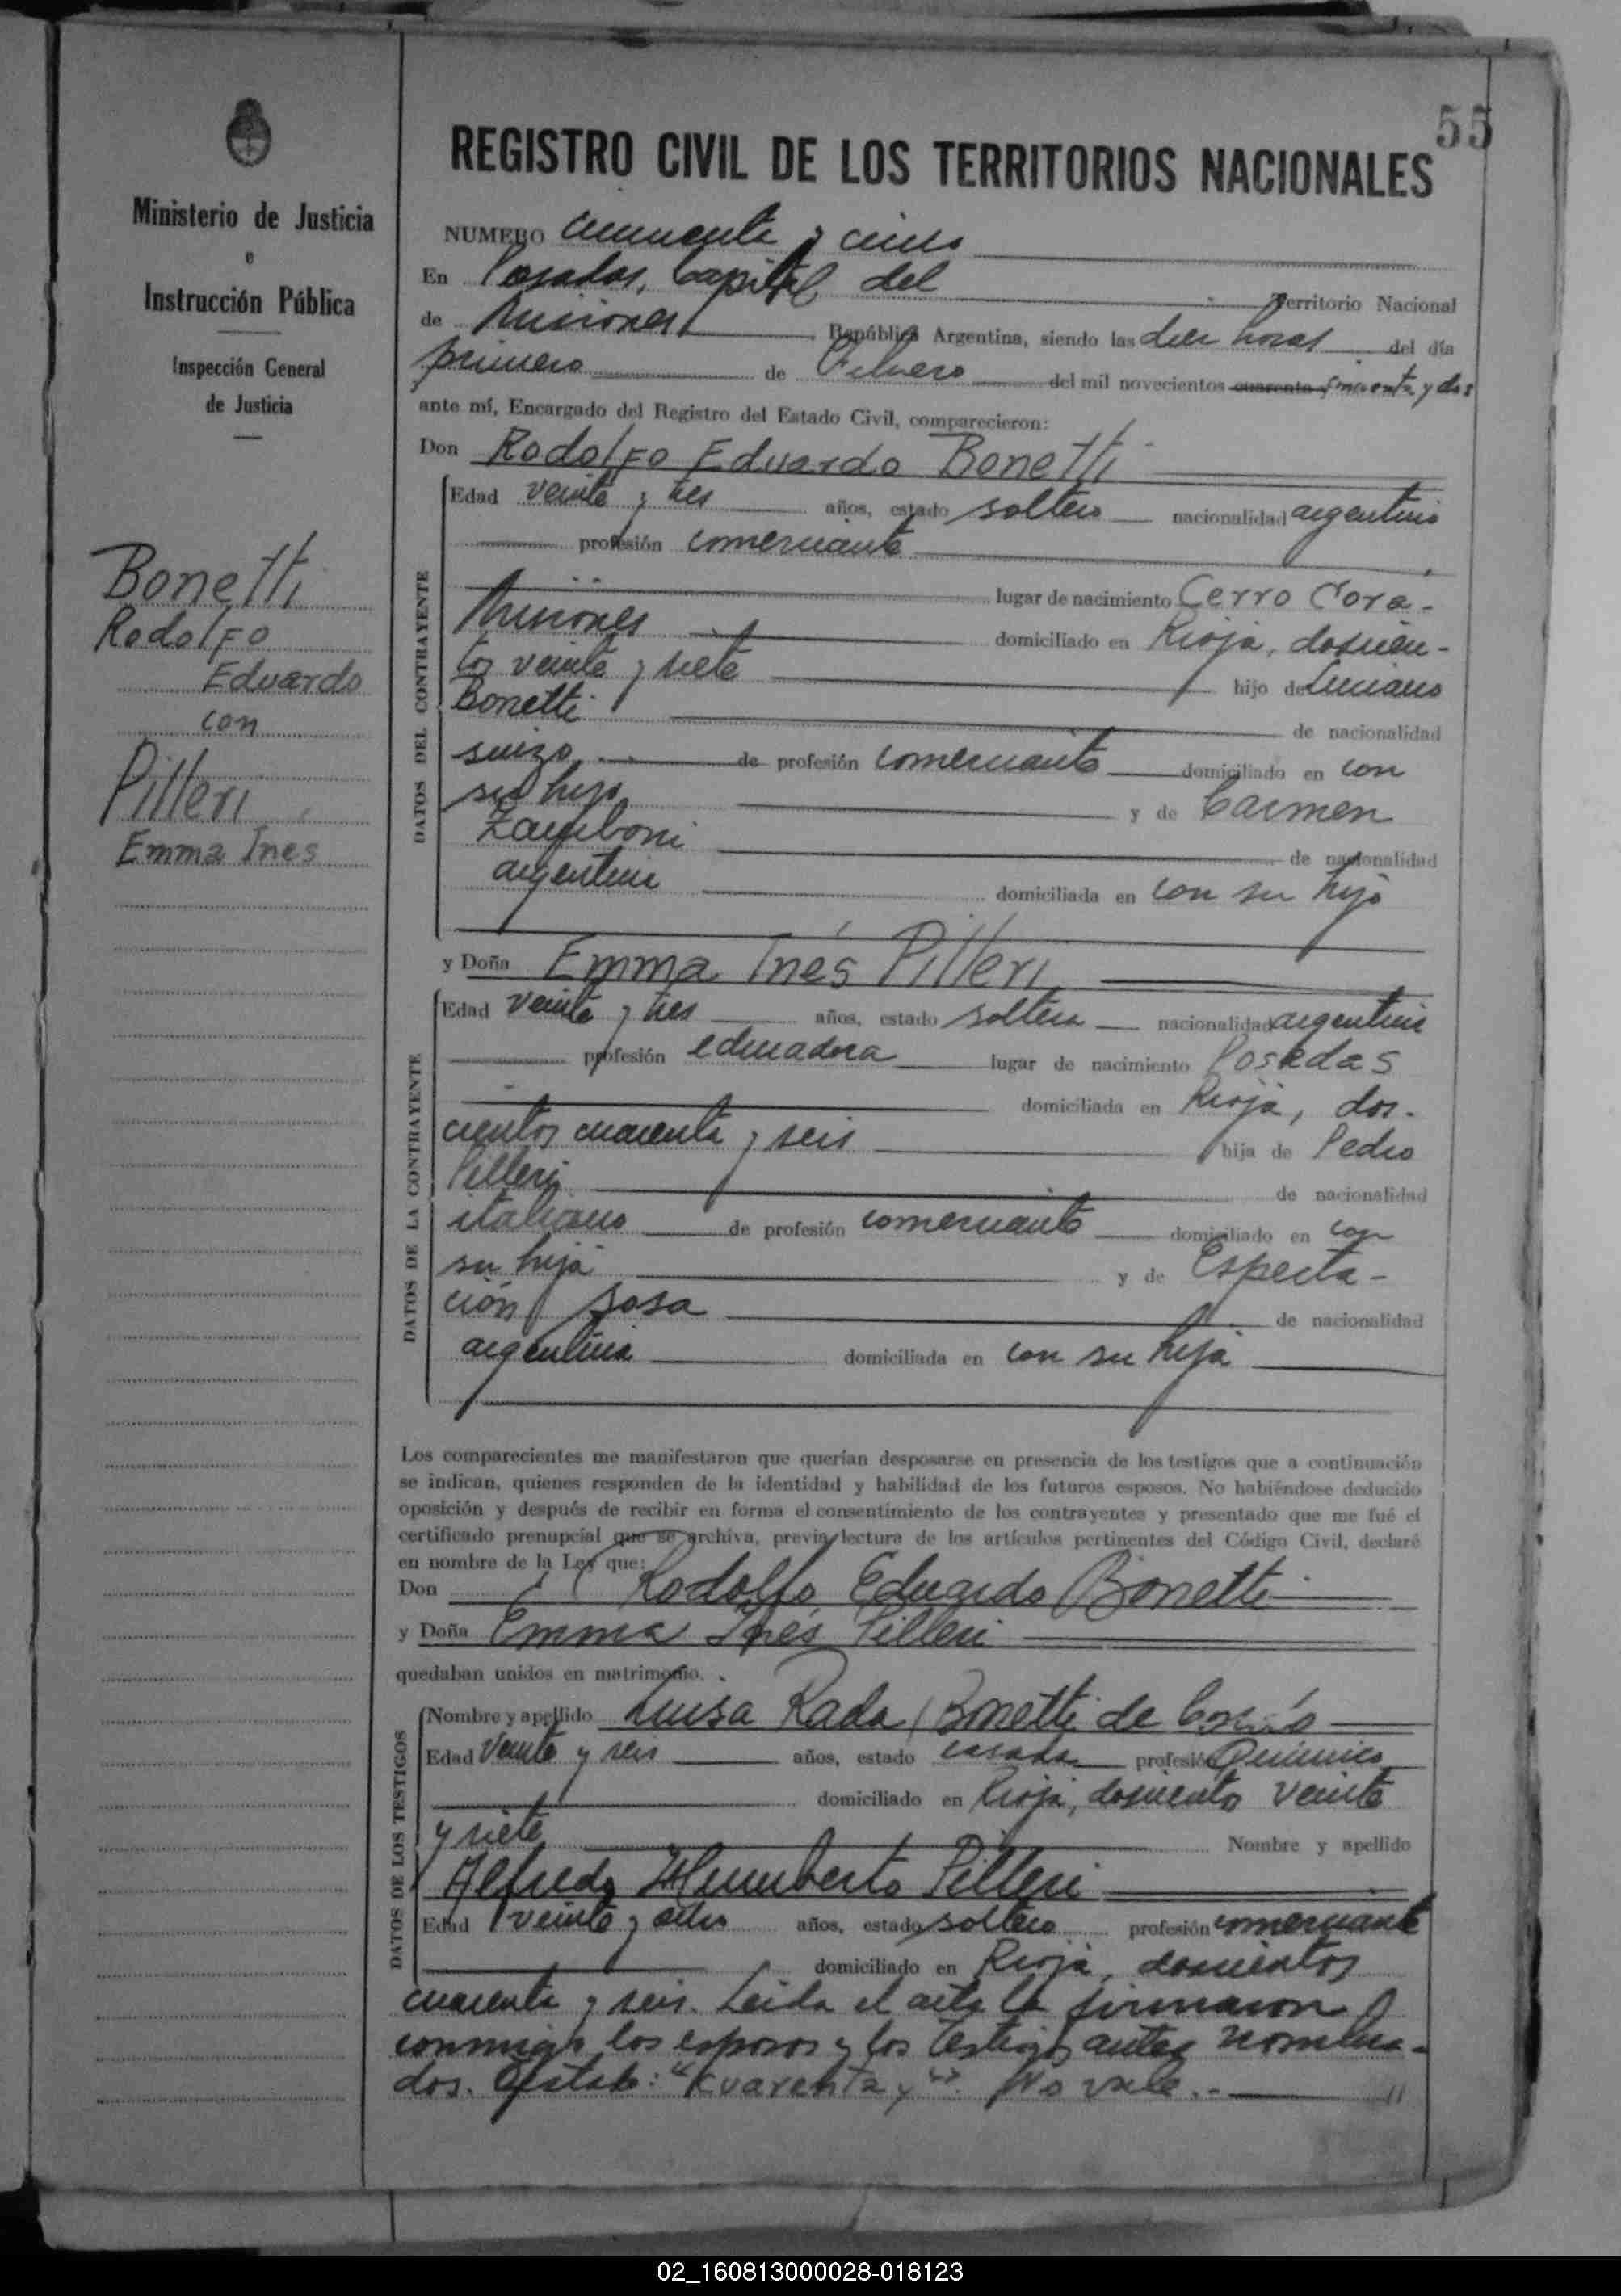 55
Ministerio de Justicia
e
Instrucción Pública
Inspección General
de Justicia
Bonetti
Rodolfo
Eduardo
con
Pilleri
Emma Ines
REGISTRO CIVIL DE LOS TERRITORIOS NACIONALES
NUMERO cincuenta y cinco
En Posadas, Capital del Territorio Nacional
de Misiones República Argentina, siendo las diez horas del día
primero de Febrero del mil novecientos cuarenta y cincuenta y dos
ante mí, Encargado del Registro del Estado Civil, comparecieron:
Don Rodolfo Eduardo Bonetti
DATOS DEL CONTRAYENTE
Edad veinte y tres años, estado soltero nacionalidad argentino
profesión comerciante
lugar de nacimiento Cerro Cora-
Misiones domiciliado en Rioja, doscien-
tos veinte y siete hijo de Luciano
Bonetti de nacionalidad
suizo de profesión comerciante domiciliado en con
su hijo y de Carmen
Zamboni de nacionalidad
argentina domiciliada en con su hijo
y Doña Emma Inés Pilleri
DATOS DE LA CONTRAYENTE
Edad veinte y tres años, estado soltera nacionalidad argentina
profesión educadora lugar de nacimiento Posadas
domiciliada en Rioja, dos-
cientos cuarenta y seis hija de Pedro
Pilleri de nacionalidad
italiano de profesión comerciante domiciliado en con
su hija y de Especta-
ción Sosa de nacionalidad
argentina domiciliada en con su hija
Los comparecientes me manifestaron que querían desposarse en presencia de los testigos que a continuación
se indican, quienes responden de la identidad y habilidad de los futuros esposos. No habiéndose deducido
oposición y después de recibir en forma el consentimiento de los contrayentes y presentado que me fué el
certificado prenupcial que se archiva, previa lectura de los artículos pertinentes del Código Civil, declaré
en nombre de la Ley que:
Don Rodolfo Eduardo Bonetti
y Doña Emma Inés Pilleri
quedaban unidos en matrimonio.
DATOS DE LOS TESTIGOS
Nombre y apellido Luisa Rada Bonetti de
Edad Veinte y seis años, estado casada profesión Químico
domiciliado en Rioja, doscientos veinte
y siete Nombre y apellido
Alfredo Humberto Pilleri
Edad veinte y ocho años, estado soltero profesión comerciante
domiciliado en Rioja, doscientos
cuarenta y seis. Leida el acta la firmaron
conmigo los esposos y los testigos antes nombra-
dos. "cuarenta y". No vale.-
02_160813000028-018123